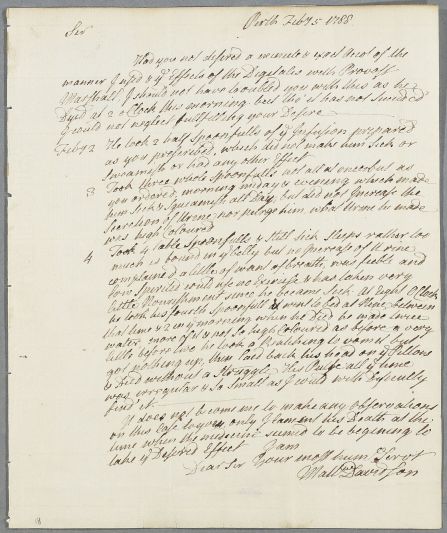 Perth Feby 5 1788
Sir
Had you not desired a minute & exact Acct of the
manner I used & ye Effects of the Digitales with Provost
Marshall I should not have troubled you with this as he
Dyed at 2 oClock this morning. but tho' it has not succeeded
I could not neglect fulfilling your Desire
Feby 2 He took 2 half Spoonfulls of ye Infusion prepared
as you prescribed, which did not make him Sick or
Sqeamish or had any other Effect
3 Took three whole Spoonfulls not all at once but as
you ordered morning midday & evening which made
him Sick & Squeamish all Day, but did not Increase the
Secretion of Urine, nor purge him, what Urine he made
was high Coloured
4 Took 4 table Spoonfulls & Still Sick Sleeps rather too
much is bound in ye belly but no Increase of Urine
complained a little of want of breath, was feeble and
low Spirited could use no Exercise & has taken very
little Nourishment since he became Sick. at Eight OClock
he took his fourth Spoonfull & went to bed at Near, between
that time & 2 in ye morning when he Died he made twice
water more of it & not so high Coloured as before a very
little before two he took a Reatching to vomit but
got nothing up, then laid back his head on ye Pillows
& Died without a Struggle His Pulse all ye time
was irregular & so Small as I could with Difficulty
find it.
It does not become me to make any observations
on this Case to you, only I lament his Death at the
time when the medicine seemed to be begining to
take ye Desired Effect I am
Dear Sir Your most hum Servt
Davidson